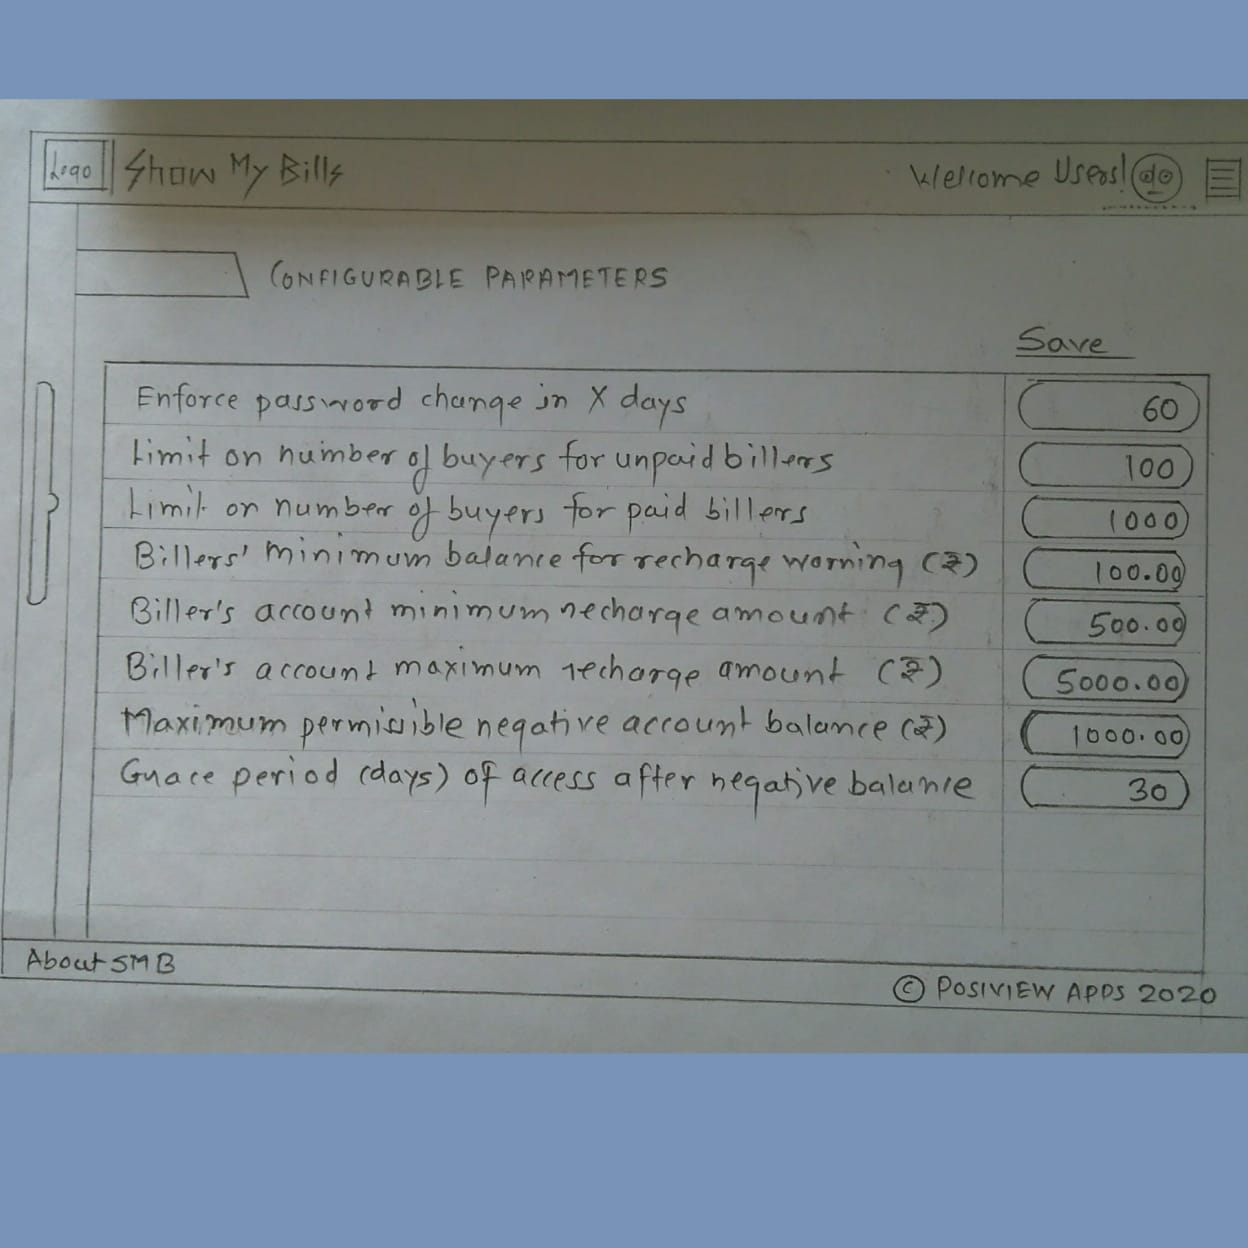 Logo Show My Bills Welcome Users!
CONFIGURABLE PARAMETERS
Save
Enforce password change in X days 60
Limit on number of buyers for unpaid billers 100
Limit on number of buyers for paid billers 1000
Billers' minimum balance for recharge warning (₹) 100.00
Biller's account minimum recharge amount (₹) 500.00
Biller's account maximum recharge amount (₹) 5000.00
Maximum permissible negative account balance (₹) 1000.00
Grace period (days) of access after negative balance 30
About SMB
© POSIVIEW APPS 2020